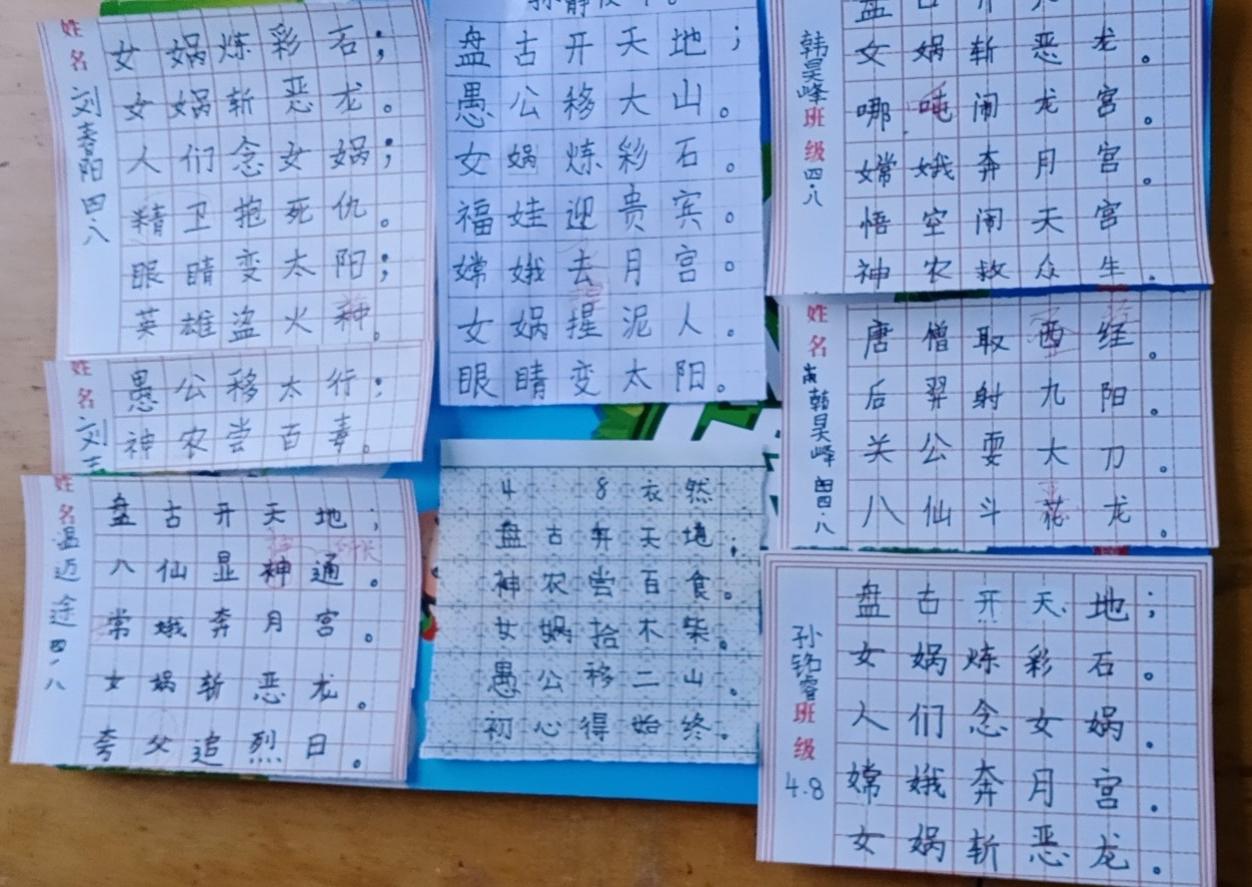 姓名 刘春阳 四.八
女娲炼彩石；
女娲斩恶龙。
人们念女娲；
精卫抱死仇。
眼睛变太阳；
英雄盗火种。
姓名 刘
愚公移太行；
神农尝百毒。
姓名 温迈途 四.八
盘古开天地；
八仙显神通。
常娥奔月宫。
女娲斩恶龙。
夸父追烈日。
盘古开天地；
愚公移大山。
女娲炼彩石。
福娃迎贵宾。
嫦娥去月宫。
女娲捏泥人。
眼睛变太阳。
4 8 衣然
盘古开天地；
神农尝百食。
女娲拾木柴。
愚公移二山。
初心得始终。
韩昊峰 班级 四.八
女娲斩恶龙。
哪吒闹龙宫。
嫦娥奔月宫。
悟空闹天宫
神农救众生。
姓名 韩昊峰 四八
唐僧取西经。
后羿射九阳。
关公耍大刀。
八仙斗花龙。
孙铭睿 班级 4.8
盘古开天地；
女娲炼彩石。
人们念女娲。
嫦娥奔月宫。
女娲斩恶龙。